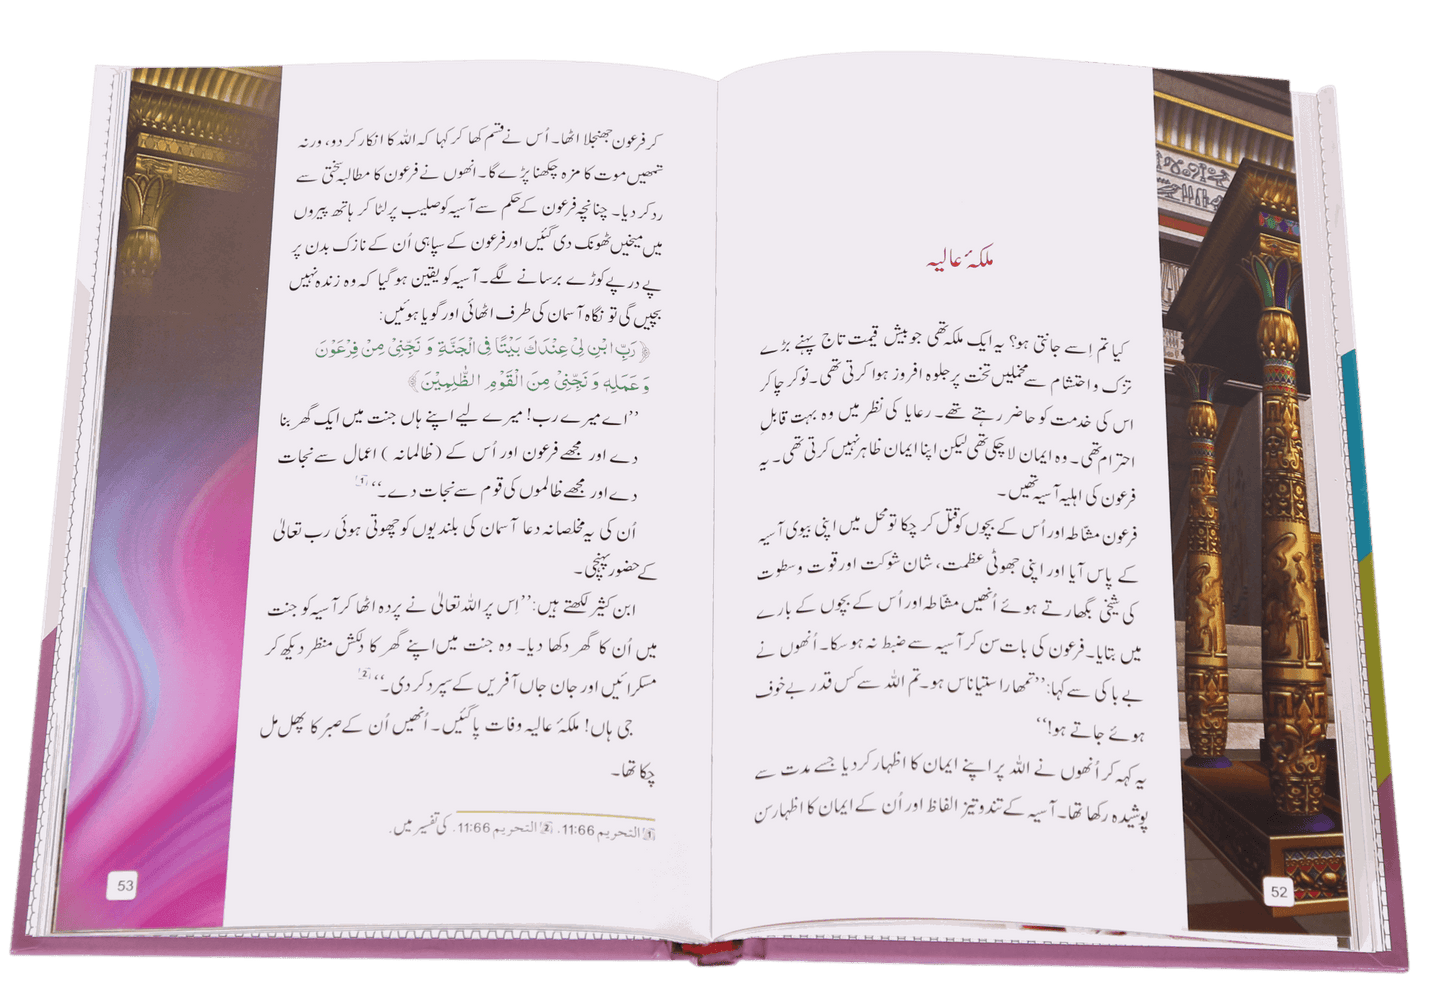 ملکۂ عالیہ
کیا تم اِسے جانتی ہو؟ یہ ایک ملکہ تھی جو بیش قیمت تاج پہنے بڑے
تزک و احتشام سے مخملیں تخت پر جلوہ افروز ہوا کرتی تھی۔ نوکر چاکر
اس کی خدمت کو حاضر رہتے تھے۔ رعایا کی نظر میں وہ بہت قابلِ
احترام تھی۔ وہ ایمان لا چکی تھی لیکن اپنا ایمان ظاہر نہیں کرتی تھی۔ یہ
فرعون کی اہلیہ آسیہ تھیں۔
فرعون مشاطہ اور اُس کے بچوں کو قتل کر چکا تو محل میں اپنی بیوی آسیہ
کے پاس آیا اور اپنی جھوٹی عظمت، شان شوکت اور قوت و سطوت
کی شیخی بگھارتے ہوئے اُنھیں مشاطہ اور اُس کے بچوں کے بارے
میں بتایا۔ فرعون کی بات سن کر آسیہ سے ضبط نہ ہو سکا۔ اُنھوں نے
بے باکی سے کہا: ’’تمھارا ستیاناس ہو۔ تم اللہ سے کس قدر بے خوف
ہوئے جاتے ہو!‘‘
یہ کہہ کر اُنھوں نے اللہ پر اپنے ایمان کا اظہار کر دیا جسے مدت سے
پوشیدہ رکھا تھا۔ آسیہ کے تند و تیز الفاظ اور اُن کے ایمان کا اظہار سن
52
کر فرعون جھنجلا اٹھا۔ اُس نے قسم کھا کر کہا کہ اللہ کا انکار کر دو، ورنہ
تمھیں موت کا مزہ چکھنا پڑے گا۔ انھوں نے فرعون کا مطالبہ سختی سے
رد کر دیا۔ چنانچہ فرعون کے حکم سے آسیہ کو صلیب پر لٹا کر ہاتھ پیروں
میں میخیں ٹھونک دی گئیں اور فرعون کے سپاہی اُن کے نازک بدن پر
پے در پے کوڑے برسانے لگے۔ آسیہ کو یقین ہو گیا کہ وہ زندہ نہیں
بچیں گی تو نگاہ آسمان کی طرف اٹھائی اور گویا ہوئیں:
﴿ رَبِّ ابْنِ لِيْ عِنْدَكَ بَيْتًا فِي الْجَنَّةِ وَ نَجِّنِيْ مِنْ فِرْعَوْنَ
وَ عَمَلِهٖ وَ نَجِّنِيْ مِنَ الْقَوْمِ الظّٰلِمِيْنَ ﴾
’’اے میرے رب! میرے لیے اپنے ہاں جنت میں ایک گھر بنا
دے اور مجھے فرعون اور اُس کے (ظالمانہ) اعمال سے نجات
دے اور مجھے ظالموں کی قوم سے نجات دے۔‘‘ [1]
اُن کی یہ مخلصانہ دعا آسمان کی بلندیوں کو چھوتی ہوئی رب تعالیٰ
کے حضور پہنچی۔
ابن کثیر لکھتے ہیں: ’’اِس پر اللہ تعالیٰ نے پردہ اٹھا کر آسیہ کو جنت
میں اُن کا گھر دکھا دیا۔ وہ جنت میں اپنے گھر کا دلکش منظر دیکھ کر
مسکرائیں اور جان جاں آفریں کے سپرد کر دی۔‘‘ [2]
جی ہاں! ملکۂ عالیہ وفات پا گئیں۔ اُنھیں اُن کے صبر کا پھل مل
چکا تھا۔
[1] التحریم 11:66. [2] التحریم 11:66. کی تفسیر میں.
53